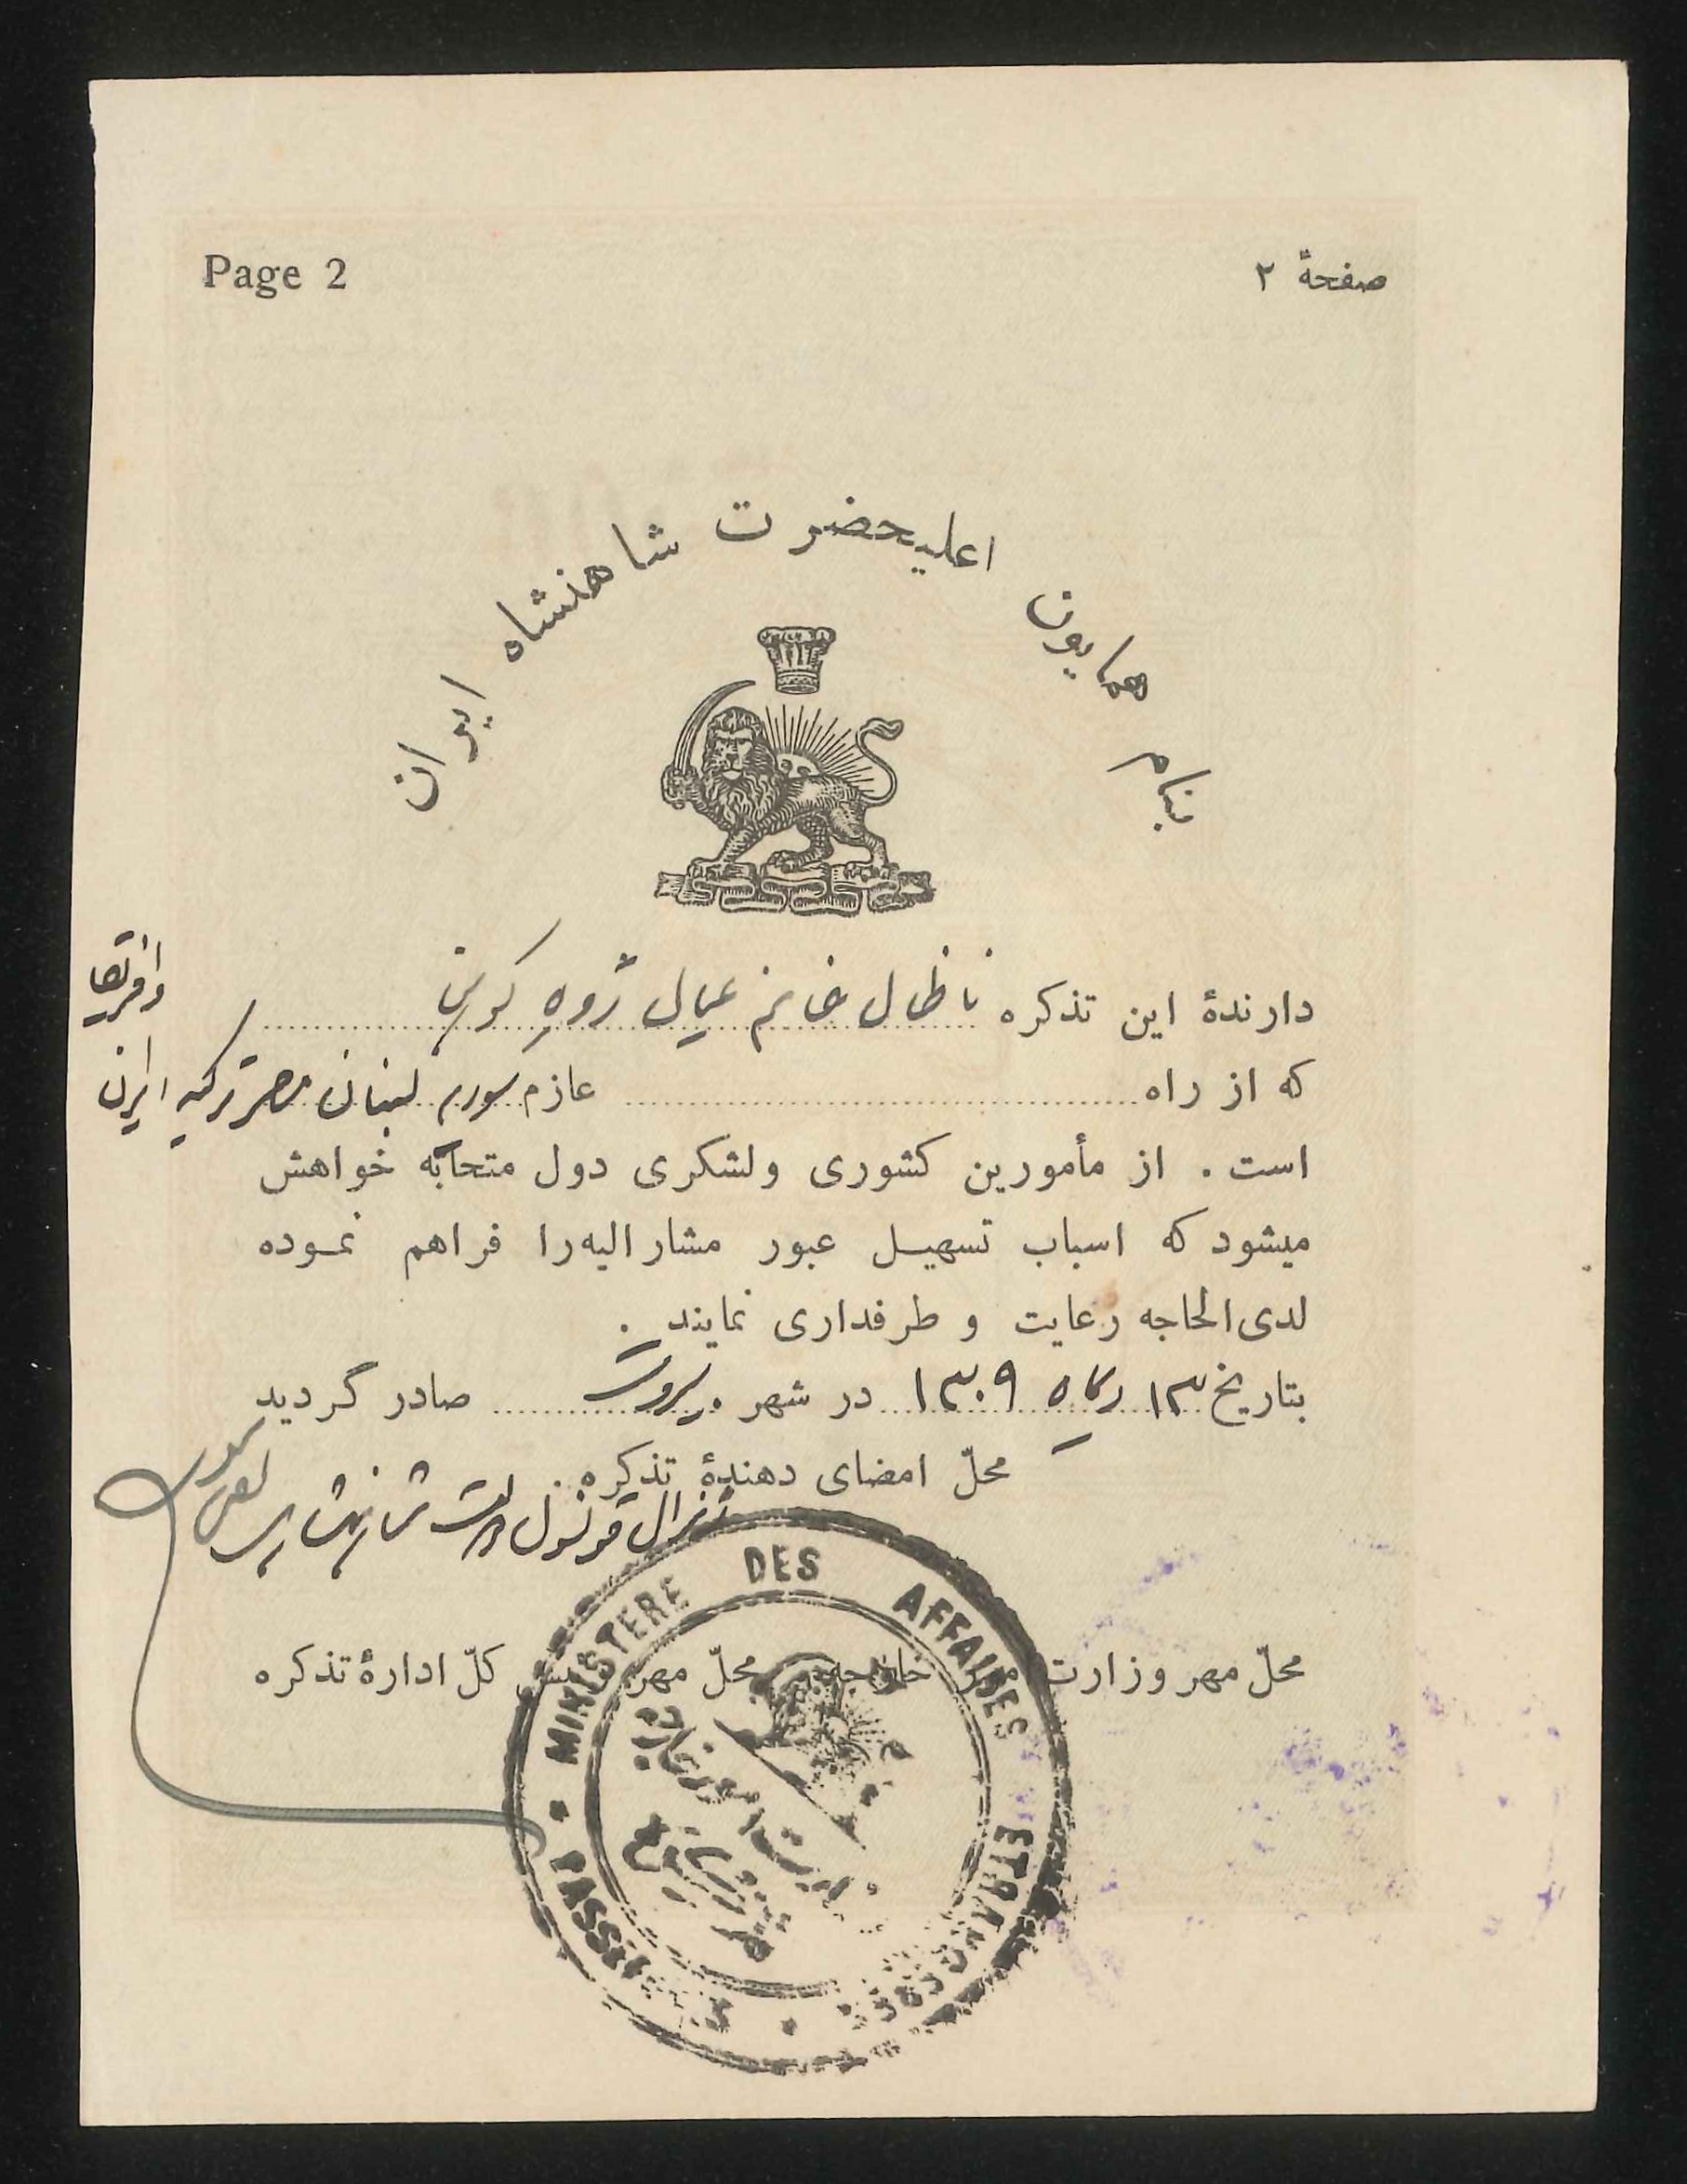 Page 2
صفحهٔ ۲
بنام همایون اعلیحضرت شاهنشاه ایران
دارندهٔ این تذکره ناظال خانم عیال ژوزه
که از راه عازم سوریه لبنان مصر ترکیه ایران
است . از مأمورین کشوری ولشکری دول متحابّه خواهش
میشود که اسباب تسهیل عبور مشارالیه‌را فراهم نموده
لدی‌الحاجه رعایت و طرفداری نمایند .
بتاریخ ۱۳ ۱۳۰۹ در شهر بیروت صادر گردید
محلّ امضای دهندهٔ تذکره
ژنرال قونسول دولت شاهنشاهی
محلّ مهر وزارت خارجه
محلّ مهر کلّ ادارهٔ تذکره
MINISTERE DES AFFAIRES ETRANGERES